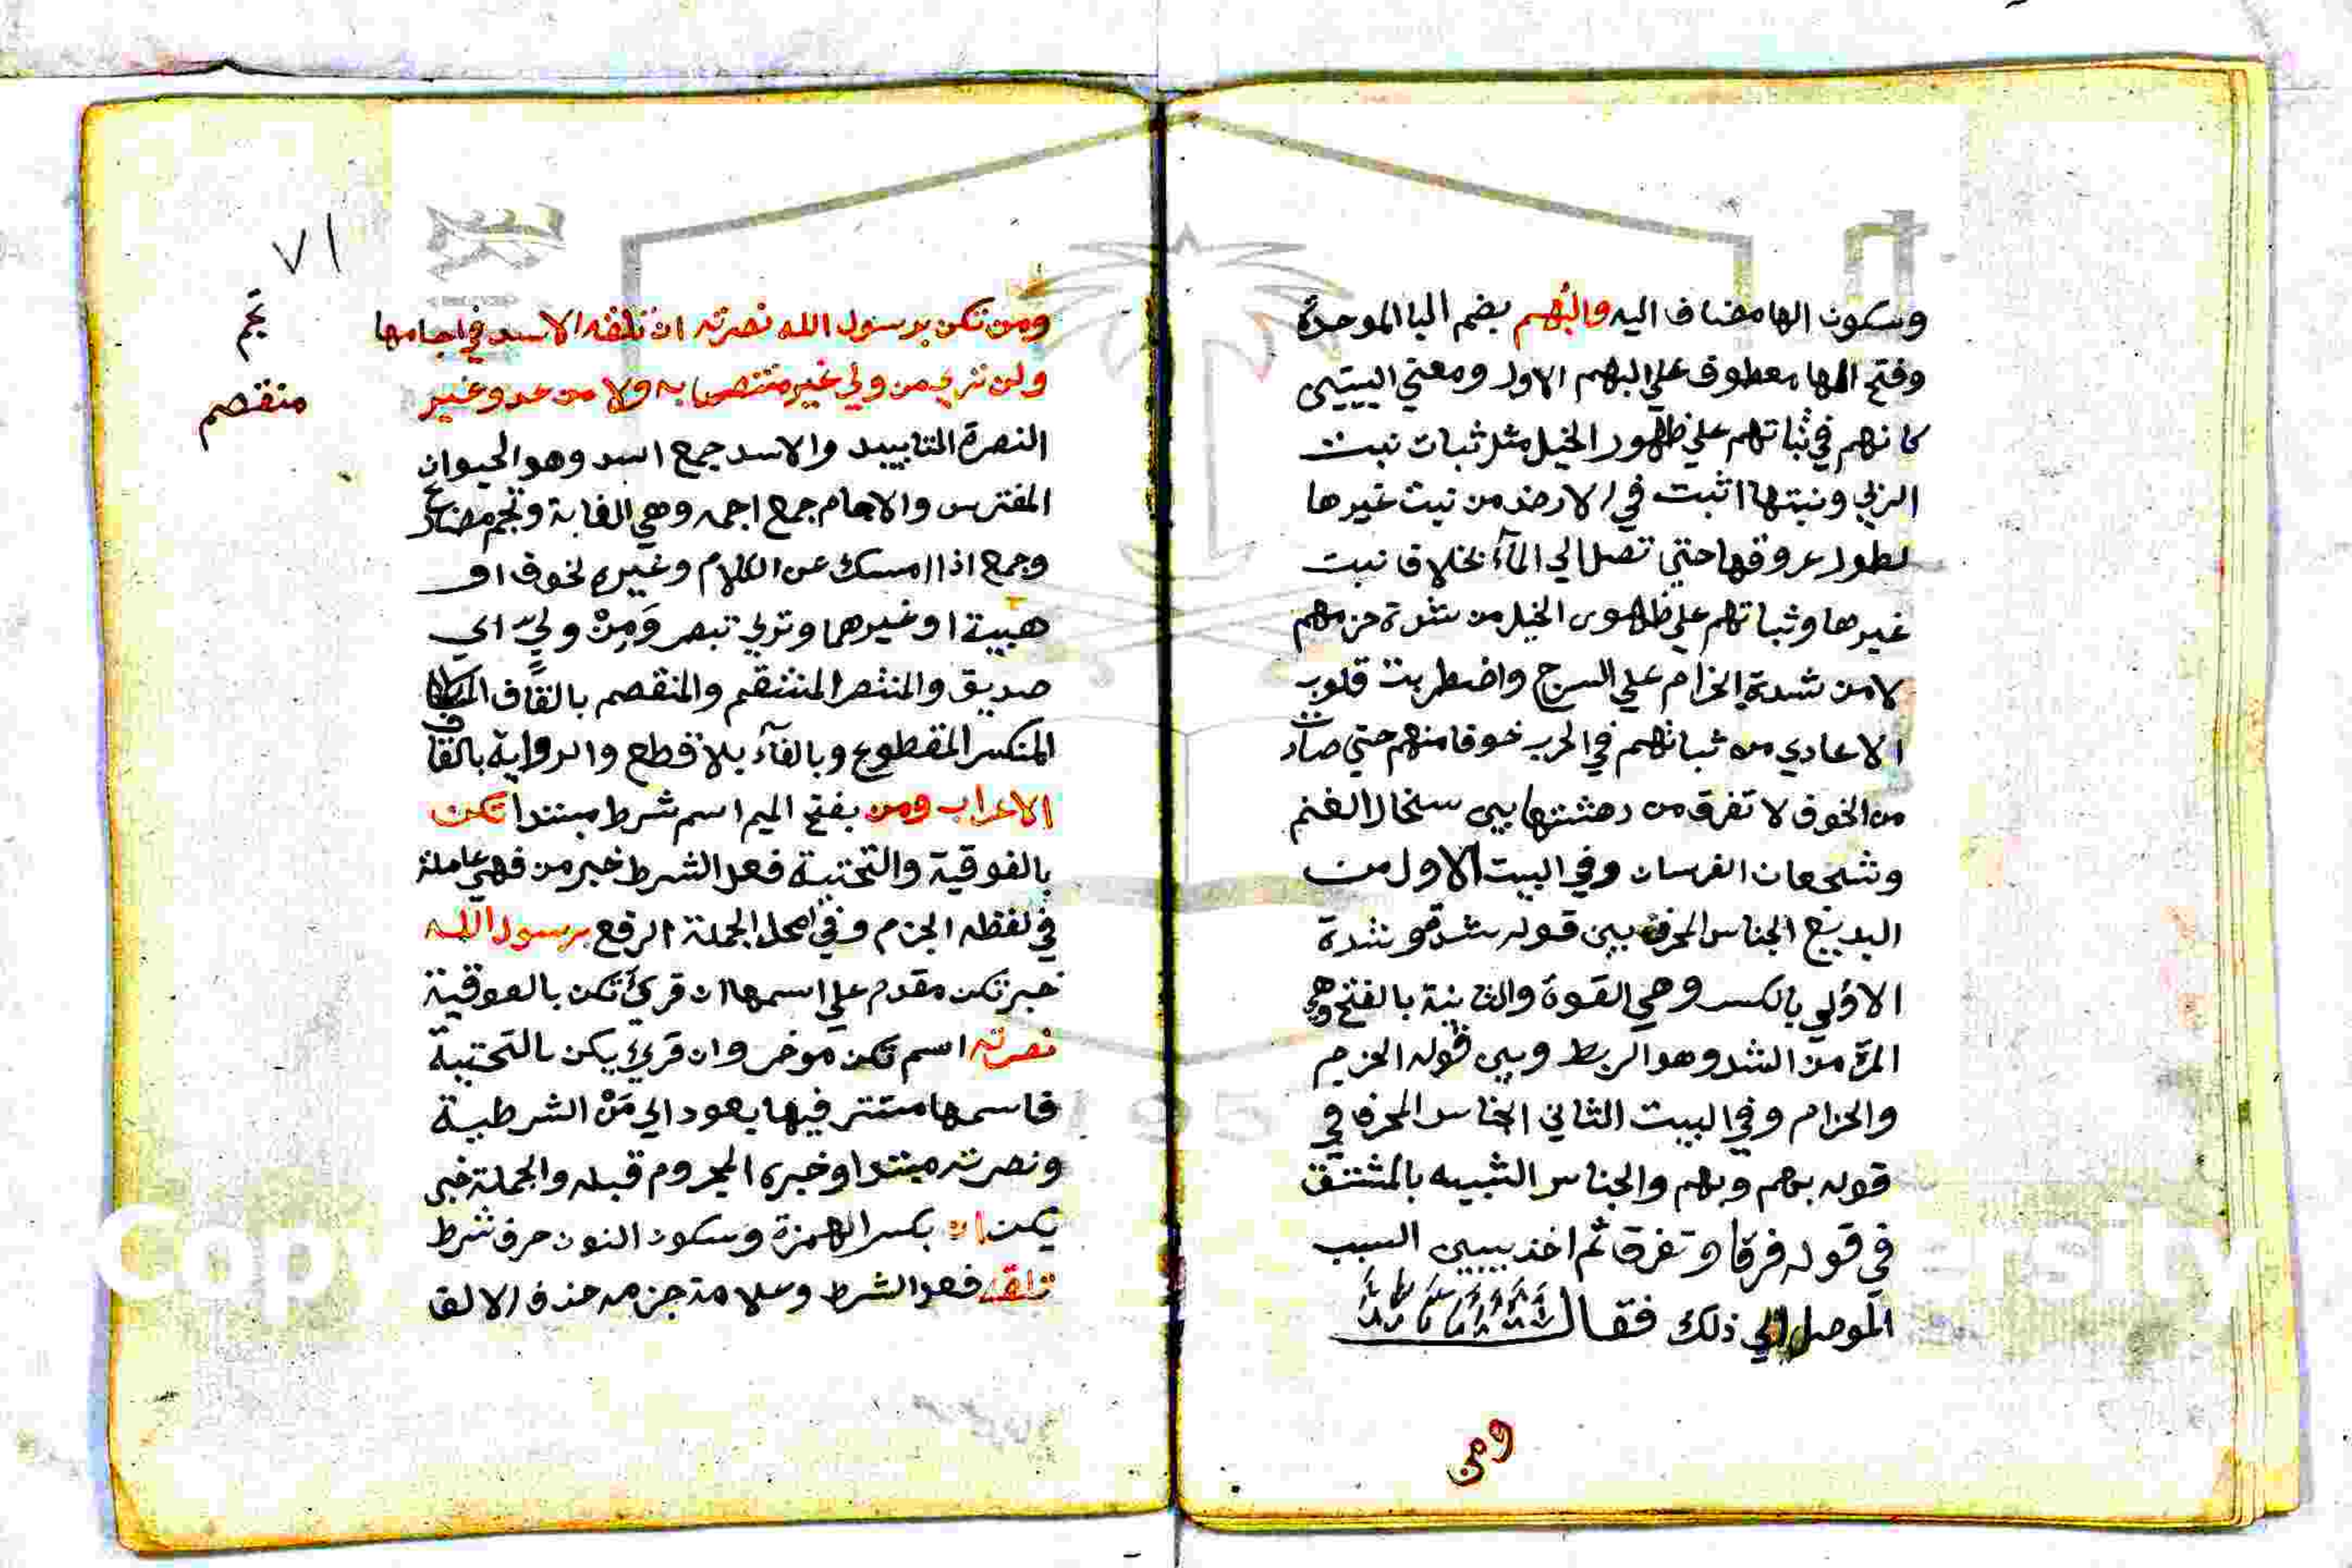 وسكون الها مضاف اليه والبُهم بضم البا الموحدة
وفتح الها معطوف علي البهم الاول ومعني البيتين
كانهم في ثباتهم علي ظهور الخيل مثل ثبات نبت
الربي ونبتها اثبت في الارض من نبت غيرها
لطول عروقها حتي تصل الي المآء بخلاف نبت
غيرها وثباتهم علي ظهور الخيل من شدة حزمهم
لا من شدة الحزام علي السرج واضطربت قلوب
الاعادي من ثباتهم في الحرب خوفا منهم حتي صارت
من الخوف لا تفرق من دهشتها بين سخال الغنم
وشجعان الفرسان وفي البيت الاول من
البديع الجناس المحرف بين قوله شدة وشدة
الاولي بالكسر وهي القوة والثانية بالفتح وهي
المرة من الشد وهو الربط وبين قوله الحزم
والحزام وفي البيت الثاني الجناس المحرف في
قوله بهم وبهم والجناس الشبيه بالمشتق
في قوله فرقا وتفرق ثم اخذ يبين السبب
الموصل الي ذلك فقال
ومن
٧١
ومن تكن برسول الله نصرته ان تلقه الاسد في اجامها
تَجم
ولن تري من ولي غير منتصر به ولا من عدو غير
منقصم
النصرة التاييد والاسد جمع اسد وهو الحيوان
المفترس والاجام جمع اجمه وهي الغابة وتجم مضارع
وجم اذا امسك عن الكلام وغيره لخوف او
هيبة او غيرهما وتري تبصر وَمِنْ وليّ اي
صديق والمنتصر المنتقم والمنقصم بالقاف
المنكسر المقطوع وبالفآء بلا قطع والرواية بالقاف
الاعراب ومن بفتح الميم اسم شرط مبتدا تكن
بالفوقية والتحتية فعل الشرط خبر من فهي عاملة
في لفظه الجزم وفي محل الجملة الرفع برسول الله
خبر تكن مقدم علي اسمها ان قرئ تكن بالفوقية
نصرته اسم تكن موخر وان قرئ يكن بالتحتية
فاسمها مستتر فيها يعود الي مَنْ الشرطية
ونصرته مبتدا وخبره المجروم قبله والجملة خبر
يكن ان بكسر الهمزة وسكون النون حرف شرط
تلقه فعل الشرط وعلامة جزمه حذف الالف